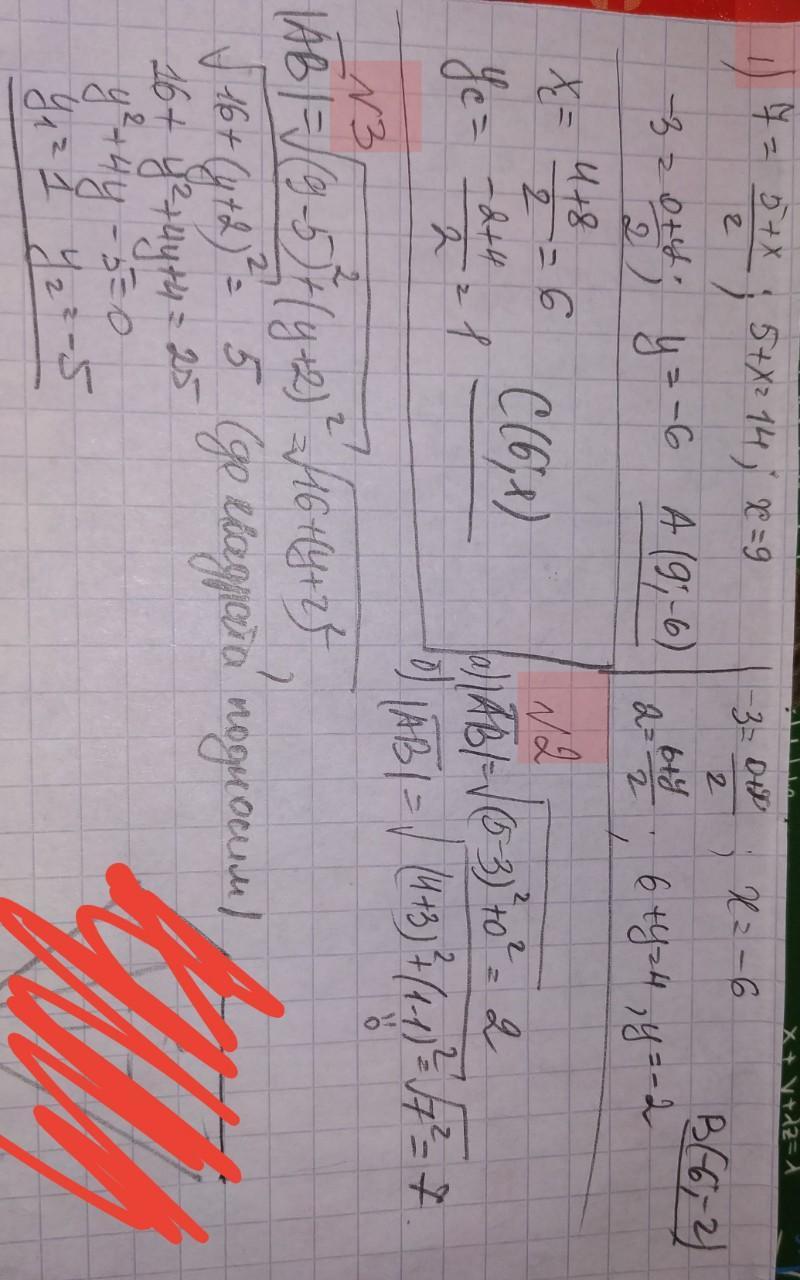 1) 7 = 5+x/2 ; 5+x=14 ; x=9
-3 = 0+y/2 ; y = -6 A (9; -6)
-3 = 0+x/2 ; x = -6
2 = 6+y/2 ; 6+y=4 , y=-2 B(-6; -2)
x_c = 4+8/2 = 6
y_c = -2+4/2 = 1 C(6; 1)
№2
а) |AB| = √(5-3)²+0² = 2
б) |AB| = √(4+3)²+(1-1)² = √7² = 7
0
№3
|AB| = √(9-5)²+(y+2)² = √16+(y+2)²
√16+(y+2)² = 5 (до квадрата, подносим)
16 + y²+4y+4 = 25
y²+4y-5=0
y₁=1 y₂=-5
x + y + 1z = 1